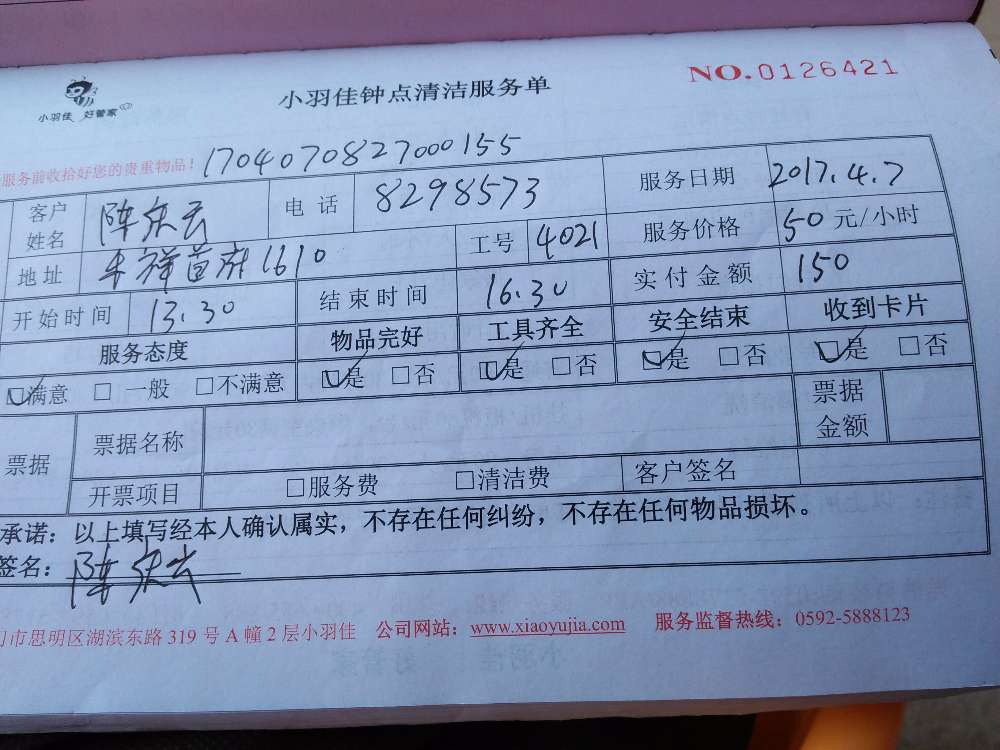 小羽佳 好管家
小羽佳钟点清洁服务单
NO.0126421
服务前收拾好您的贵重物品！ 1704070827000155
客户姓名 电话 8298573 服务日期 2017.4.7
地址 1610 工号 4021 服务价格 50 元/小时
开始时间 13.30 结束时间 16.30 实付金额 150
服务态度 物品完好 工具齐全 安全结束 收到卡片
☑满意 □ 一般 □不满意 ☑是 □否 ☑是 □否 ☑是 □否 ☑是 □否
票据 票据名称 票据金额
开票项目 □服务费 □清洁费 客户签名
承诺：以上填写经本人确认属实，不存在任何纠纷，不存在任何物品损坏。
签名：
市思明区湖滨东路 319 号 A 幢 2 层小羽佳 公司网站：www.xiaoyujia.com 服务监督热线：0592-5888123